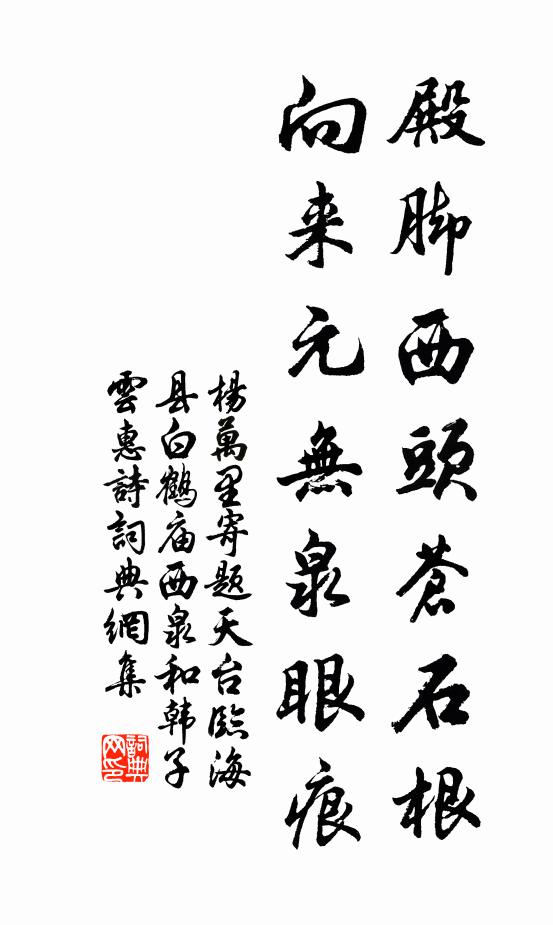 殿脚西頭蒼石根
向来元無泉眼痕
楊萬里寄題天台臨海
县白鶴庙西泉和韩子
雲惠詩詞典網集
詞典网印